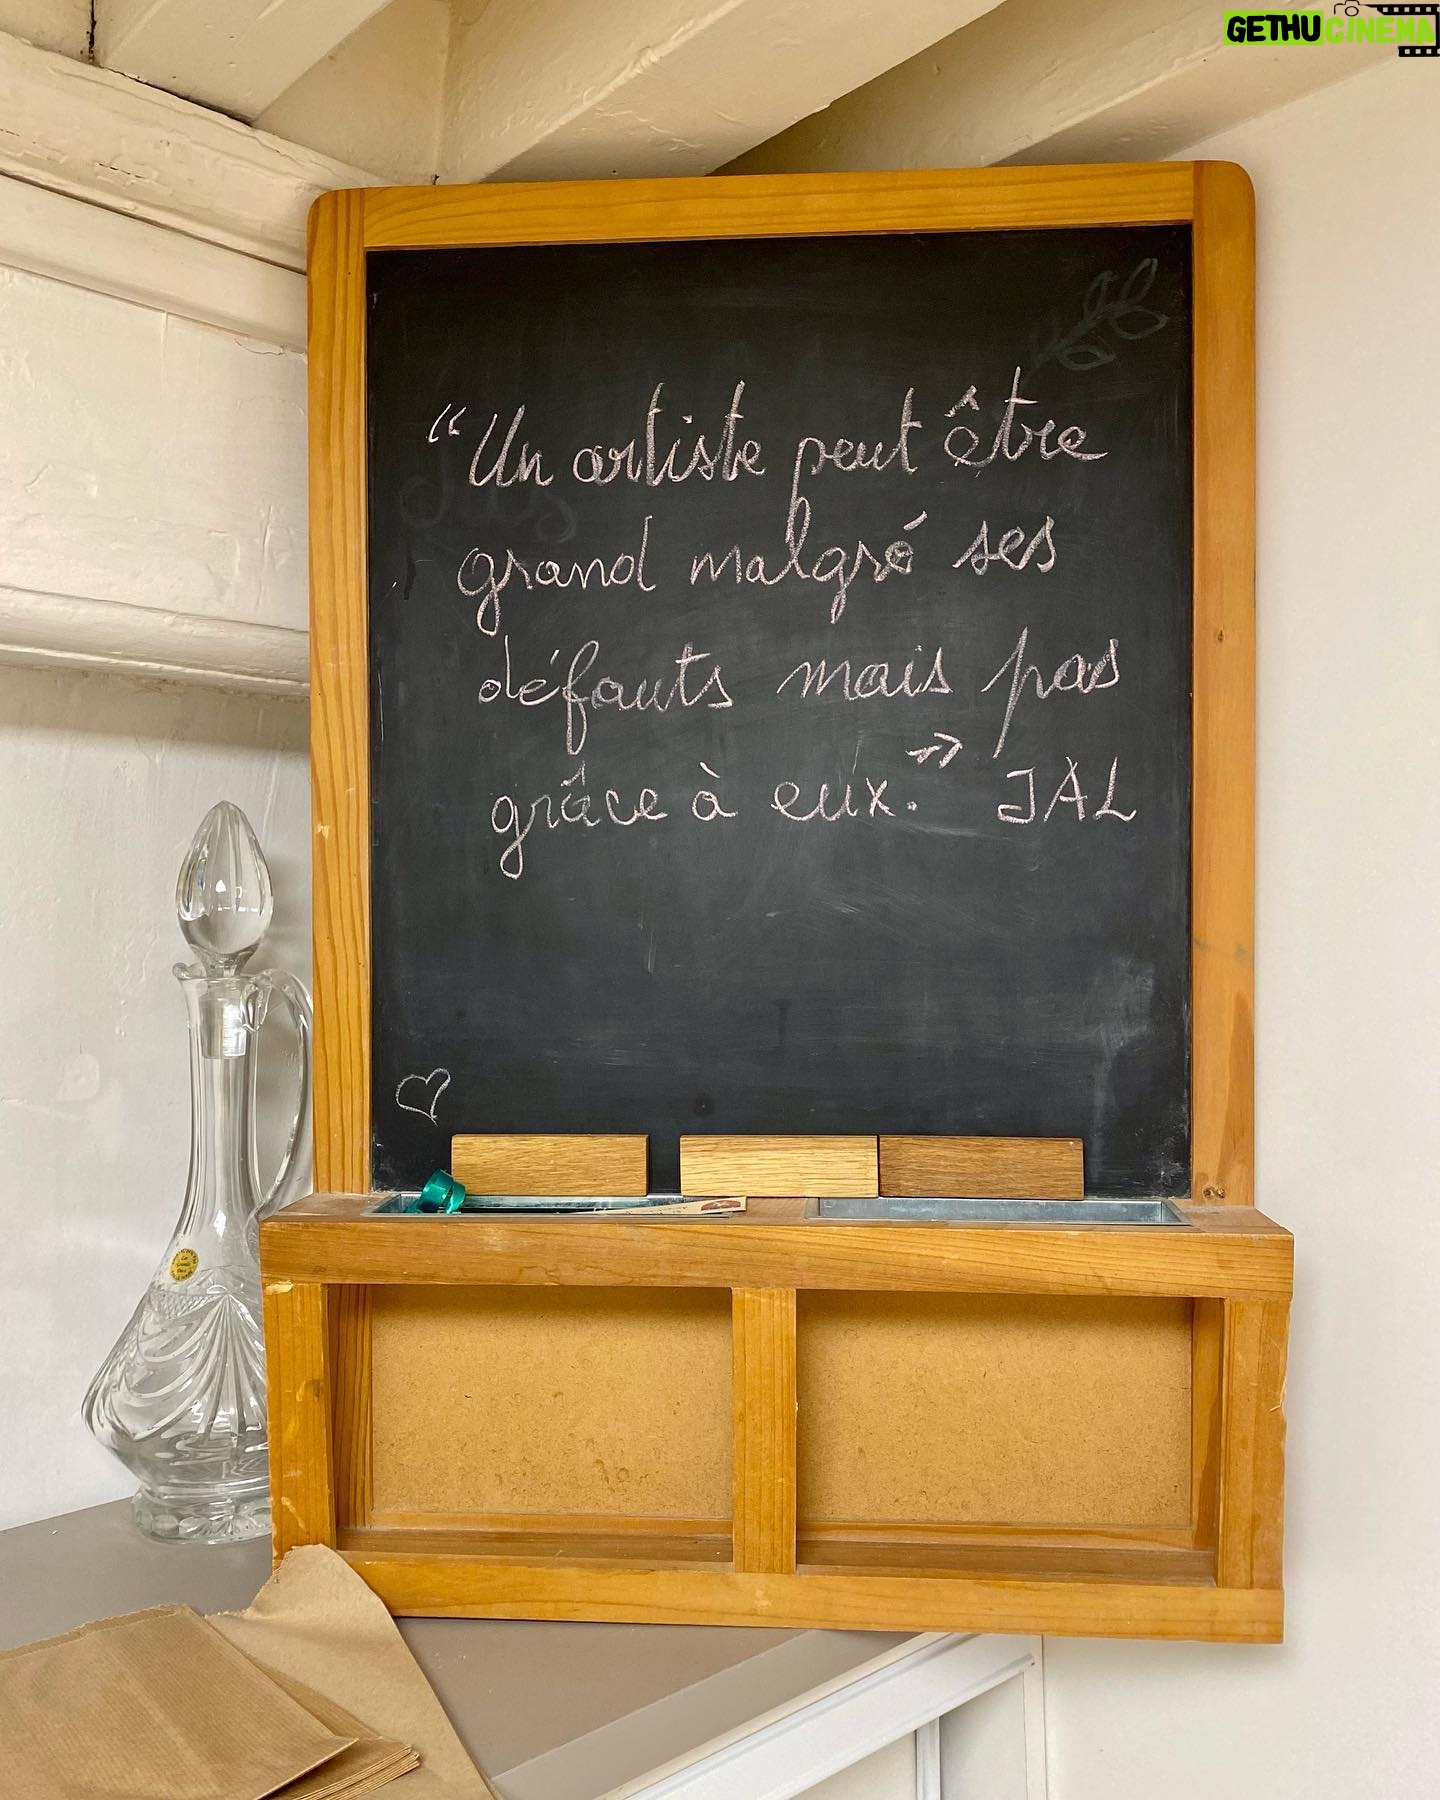 GETHU CINEMA
“Un artiste peut être
grand malgré ses
défauts mais pas
grâce à eux.” JAL